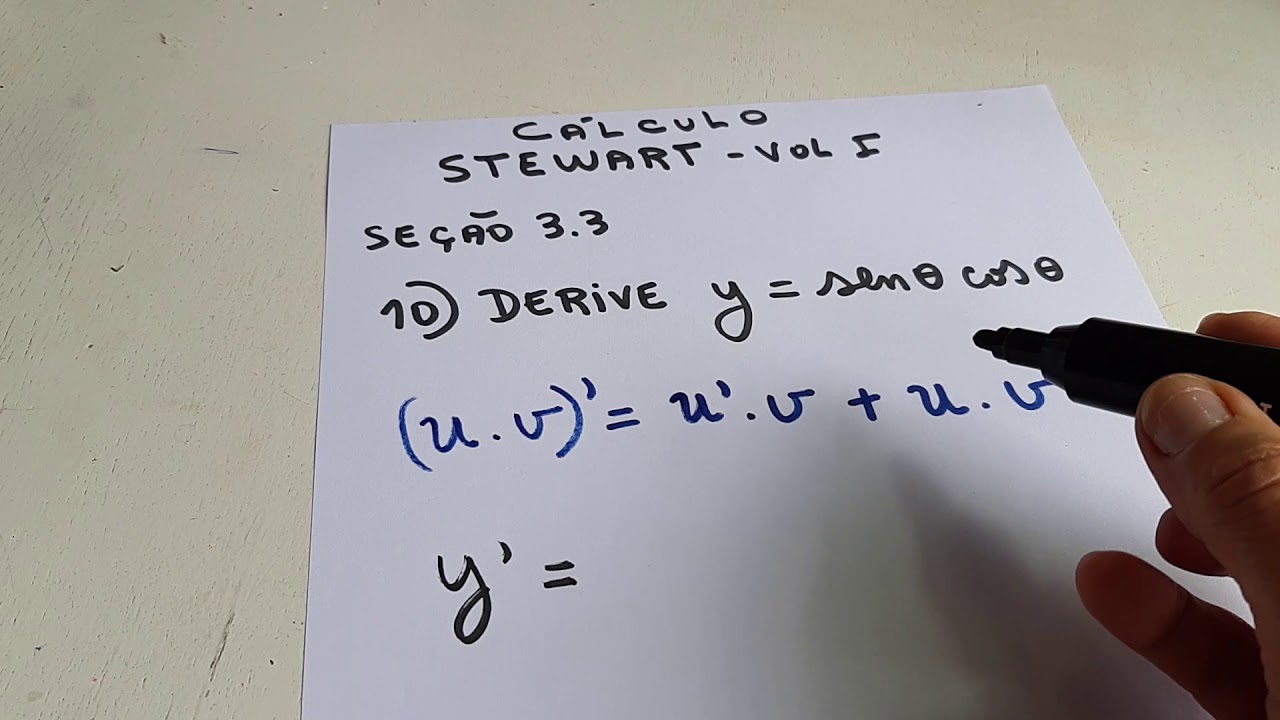 CÁLCULO
STEWART - VOL I
SEÇÃO 3.3
10) DERIVE y = sen θ cos θ
(u . v)' = u' . v + u . v
y' =